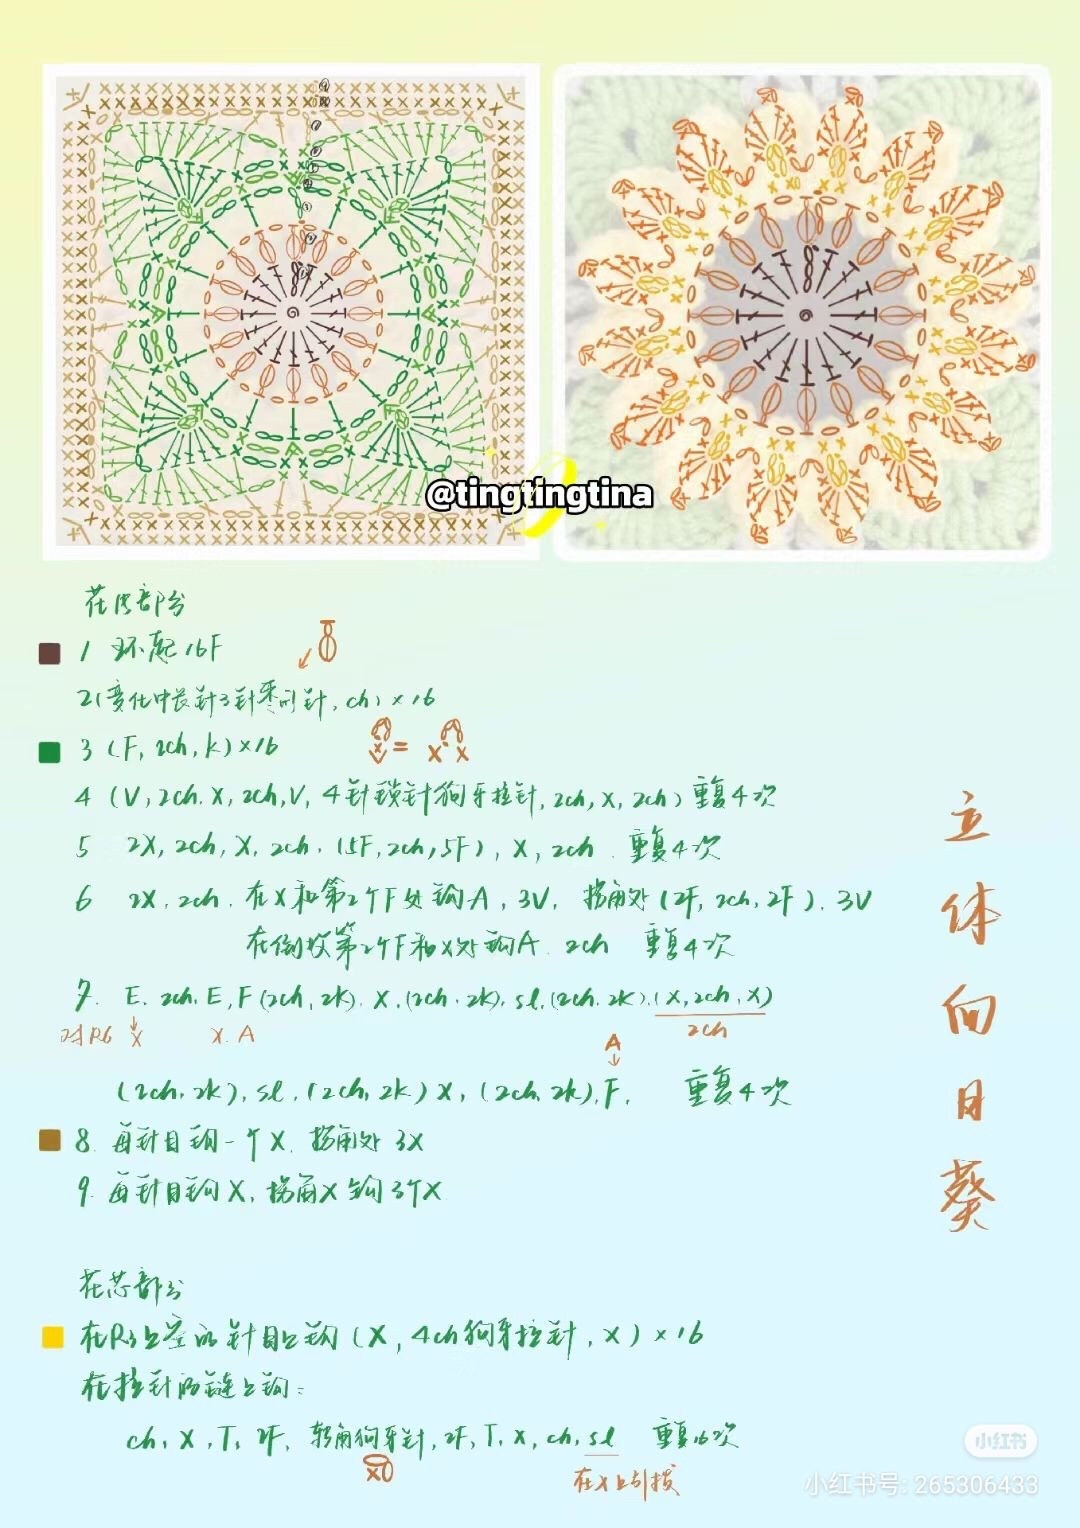 @tingtingtina
花片部分
1 环起16F
2(变化中长针3针枣形针,ch)×16
3 (F, 2ch, k)×16
= X X
4 (V, 2ch. X, 2ch, V, 4针锁针狗牙拉针, 2ch, X, 2ch) 重复4次
5 2X, 2ch, X, 2ch. (5F, 2ch, 5F), X, 2ch. 重复4次
6 2X. 2ch. 在X和第2个F处钩A, 3V, 拐角处(2F, 2ch, 2F). 3V
在倒数第2个F和X处钩A. 2ch 重复4次
7. E. 2ch. E, F(2ch, 2k). X. (2ch. 2k), sl, (2ch. 2k). (X, 2ch, X)
对R6 X X. A 2ch
A
(2ch, 2k), sl, (2ch, 2k) X, (2ch, 2k), F, 重复4次
8. 每针目钩一个X. 拐角处3X
9. 每针目钩X, 拐角X钩3个X
立体向日葵
花芯部分
在R3上空的针目上钩(X, 4ch狗牙拉针, X)×16
在拉针的链上钩:
ch, X, T, 2F, 转角狗牙针, 2F, T, X, ch, sl 重复16次
X0
在X上引拔
小红书
小红书号: 265306433